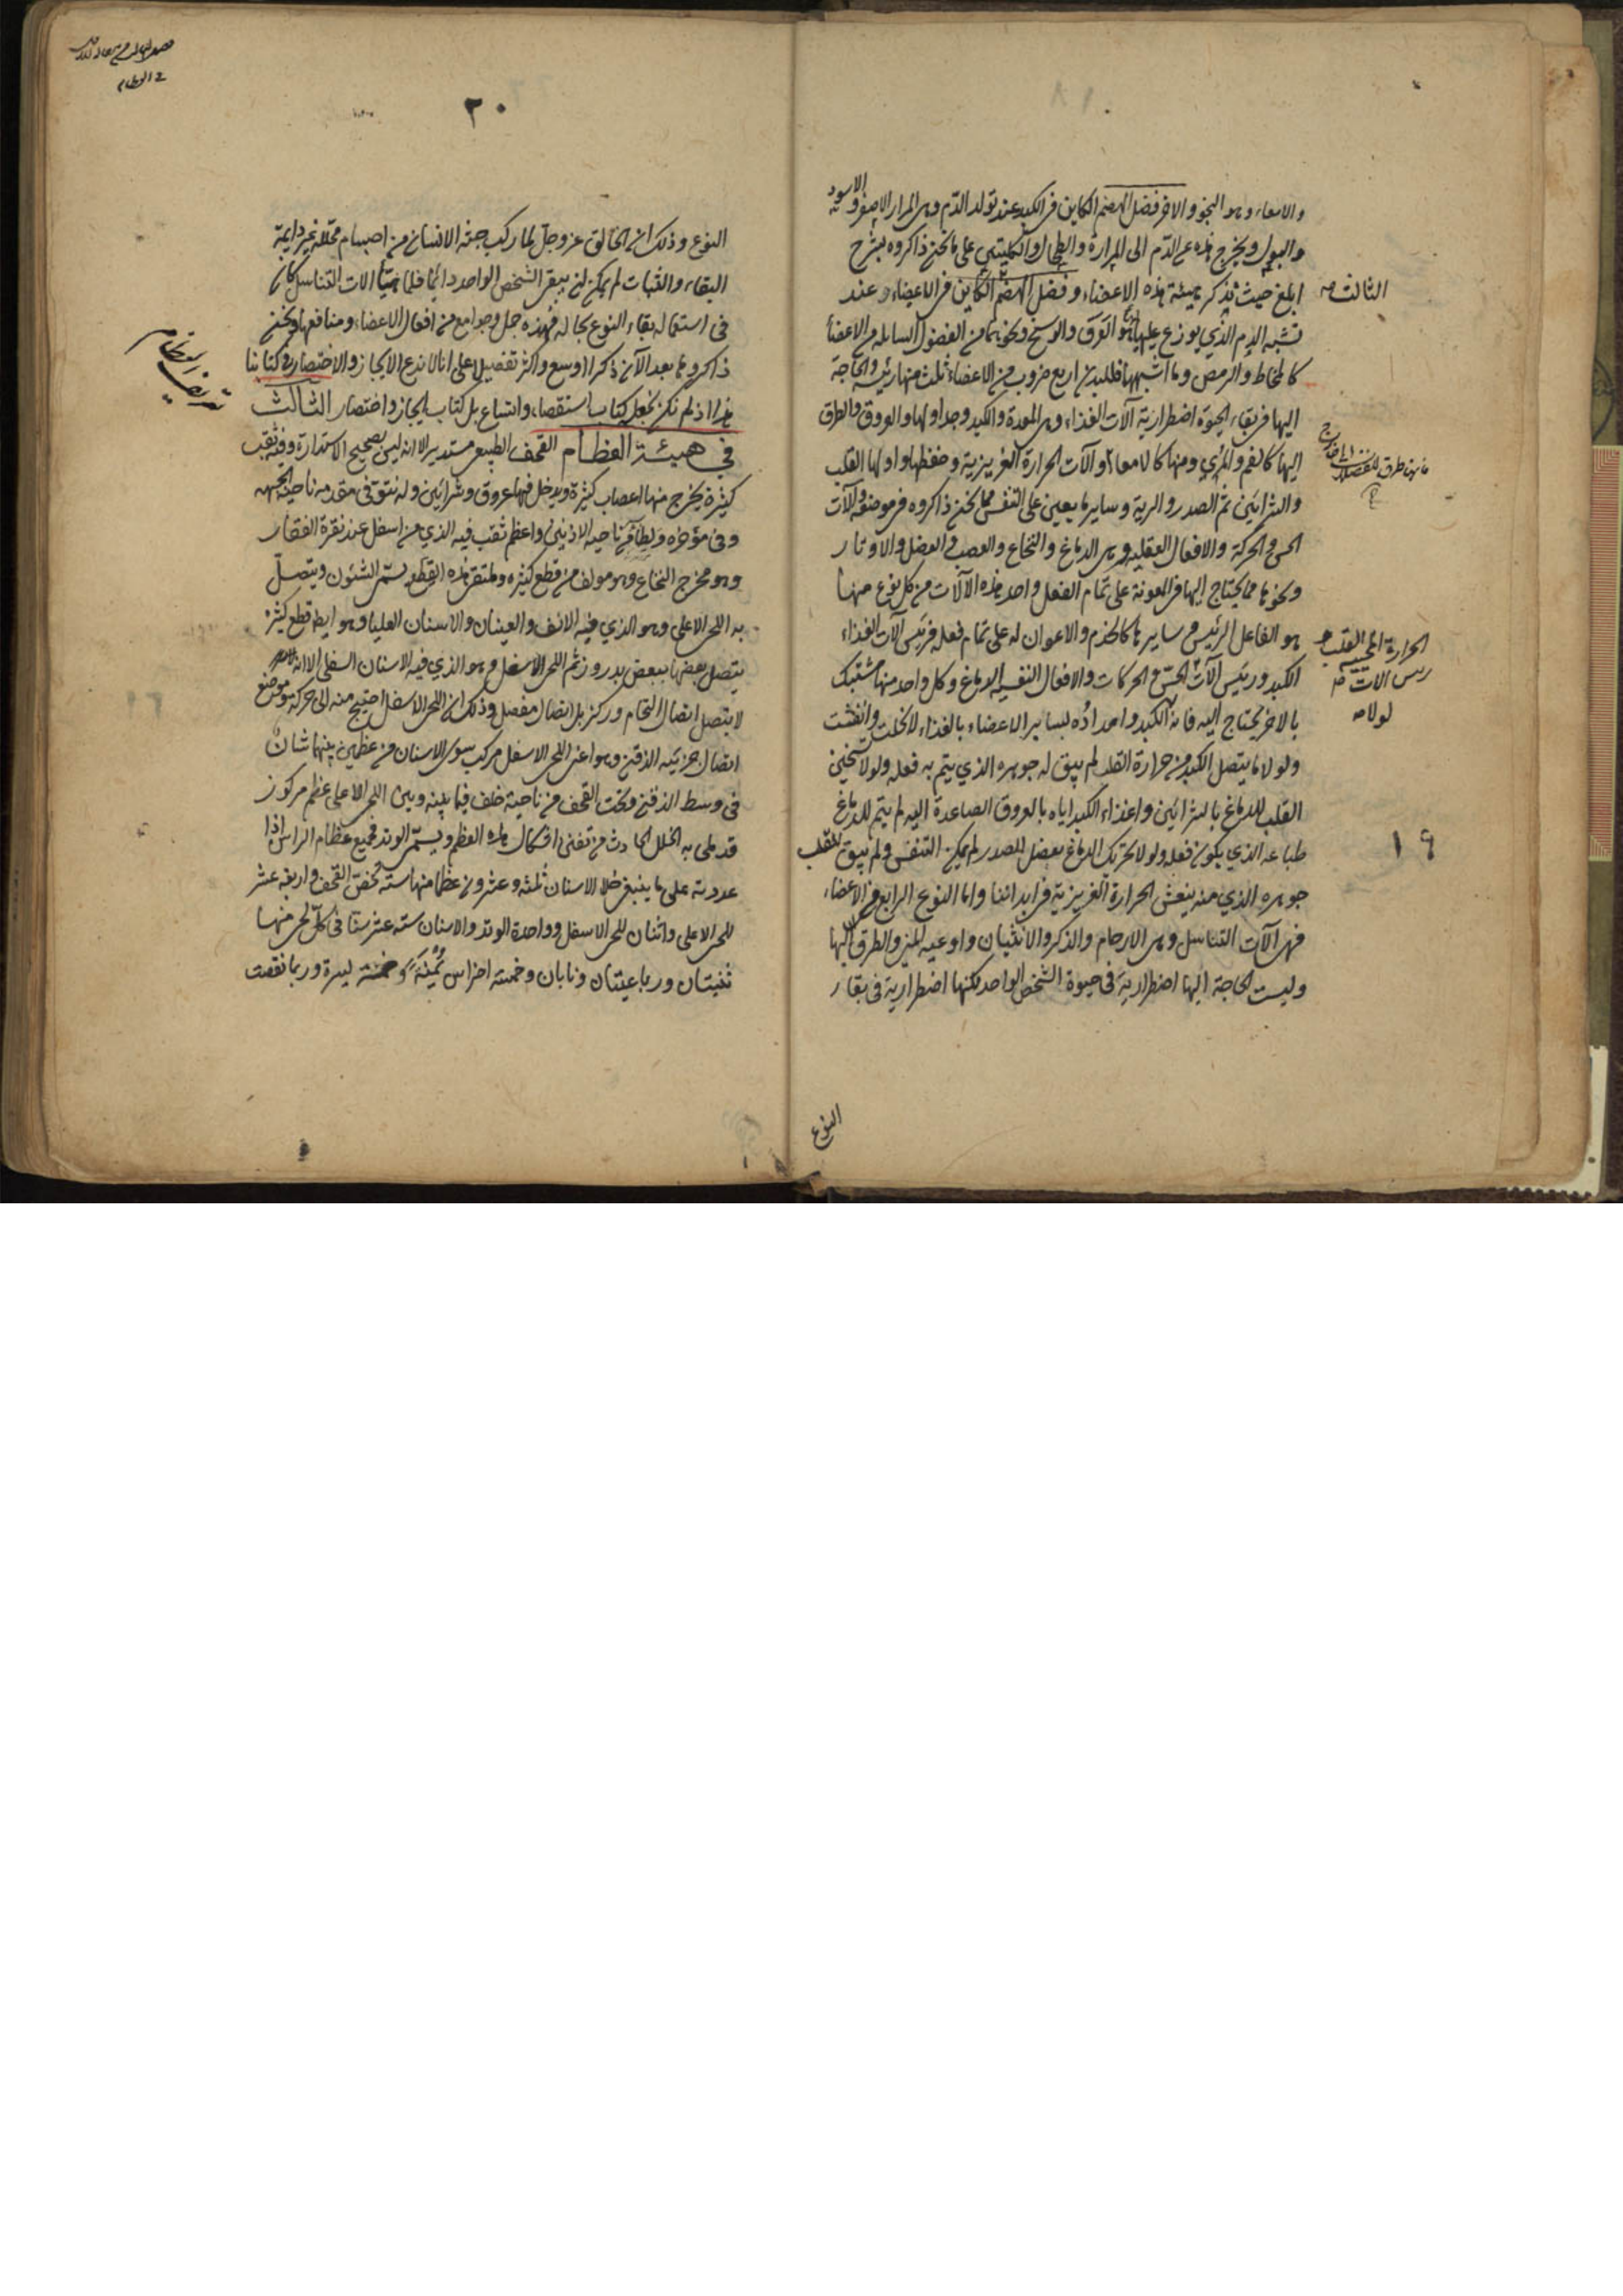 والامعاء وهو النجو والاخر فضل الهضم الكاين في الكبد عند تولد الدم وهي المرار الاصفر والاسود
والبول ويخرج هذه عن الدم الى المرارة والطحال والكليتين على ما نحن ذاكروه بشرح
ابلغ حيث نذكر هيئة هذه الاعضاء وفضل الهضم الكاين في الاعضاء وعند
الثالث صح
تشبه الدم الذي يوزع عليها هو العرق والوسخ ونحوهما من الفضول السايله من الاعضا
كالمخاط والرمص وما اشبهها فللبدن اربع ضروب من الاعضاء ثلث منها رئيسة والحاجة
اليها في بقاء الحيوة اضطرارية آلات الغذاء وهي المعدة والكبد وجداولها والعروق والطرق
اليها كالفم والمرئ ومنها كالامعاء وآلات الحرارة الغريزية وحفظها واولها القلب
والشرائين ثم الصدر والرية وساير ما يعين على التنفس مما نحن ذاكروه في موضعه وآلات
الحس والحركة والافعال العقلية وهي الدماغ والنخاع والعصب والعضل والاوتار
ونحوها مما يحتاج اليها في المعونة على تمام الفعل واحد هذه الآلات من كل نوع منها
هو الفاعل الرئيس وسايرها كالخدم والاعوان له على تمام فعله فرئيس آلات الغذاء
الكبد ورئيس آلات الحس والحركات والافعال النفسية الدماغ وكل واحد منها مشتبك
بالاخر يحتاج اليه فانه لولا الكبد وامداده لساير الاعضاء بالغذاء لانحلت وانفشت
ولولا ما يتصل بالكبد من حرارة القلب لم يبق له جوهره الذي يتم به فعله ولولا تسخين
القلب للدماغ بالشرائين واغذاء الكبد اياه بالعروق الصاعدة اليه لم يتم للدماغ
طباعه الذي يكون فعله ولولا تحريك الدماغ بعضل الصدر لم يمكن التنفس ولم يبق للقلب
جوهره الذي منه ينعش الحرارة الغريزية في ابداننا واما النوع الرابع من الاعضاء
فهي آلات التناسل وهي الارحام والذكر والانثيان واوعيه المنى والطرق اليها
وليست الحاجة اليها اضطرارية في حيوة الشخص الواحد لكنها اضطرارية في بقاء
النوع
١٩
٢٠
النوع وذلك ان الخالق عز وجل لما ركب جثة الانسان من اجسام متحللة غير دايمة
البقاء والثبات لم يمكن ان يبقى الشخص الواحد دائما فلما هيأ آلات التناسل كان
في استعماله بقاء النوع بحاله فهذه جمل وجوامع من افعال الاعضاء ومنافعها ونحن
ذاكروها بعد الآن ذكرا اوسع واكثر تفصيلا على انا لا ندع الايجاز والاختصار في كتابنا
هذا اذ لم نكن نجعل كتاب استقصاء واتساع بل كتاب ايجاز واختصار الثالث
في هيئة العظام القحف الطبيعي مستدير الا انه ليس بصحيح الاستدارة وفيه ثقب
كثيرة يخرج منها اعصاب كثيرة ويدخل فيها عروق وشرائين وله نتو في مقدمه ناحية الجبهه
وفي مؤخره ويطا من ناحيه الاذنين واعظم ثقب فيه الذي من اسفل عند نقرة القفا
وهو مخرج النخاع وهو مولف من قطع كثيره وملتقى هذه القطع يسمى الشئون ويتصل
به اللحى الاعلى وهو الذي فيه الانف والعينان والاسنان العليا وهو ايضا قطع كثيره
يتصل بعضها ببعض بدروز ثم اللحى الاسفل وهو الذي فيه الاسنان السفلى الا انه
لا يتصل اتصال التحام وركز بل اتصال مفصل وذلك ان اللحى الاسفل احتيج منه الى حركة وموضع
اتصال جزئيه الذقن وهو اعنى اللحى الاسفل مركب سوى الاسنان من عظمين بينهما شان
في وسط الذقن وتحت القحف من ناحية خلف فيما بينه وبين اللحى الاعلى عظم مركوز
قد ملى به الخلل الحادث من تفنن اشكال هذه العظم ويسمى الوتد فجميع عظام الراس اذا
عددته على ما ينبغي خلا الاسنان ثلثة وعشرون عظما منها ستة تخص القحف واربعة عشر
للحى الاعلى واثنان للحى الاسفل وواحدة الوتد والاسنان ستة عشر سنا في كل لحى منها
ثنيتان ورباعيتان ونابان وخمسة اضراس يمينة وخمسة يسرة وربما نقصت